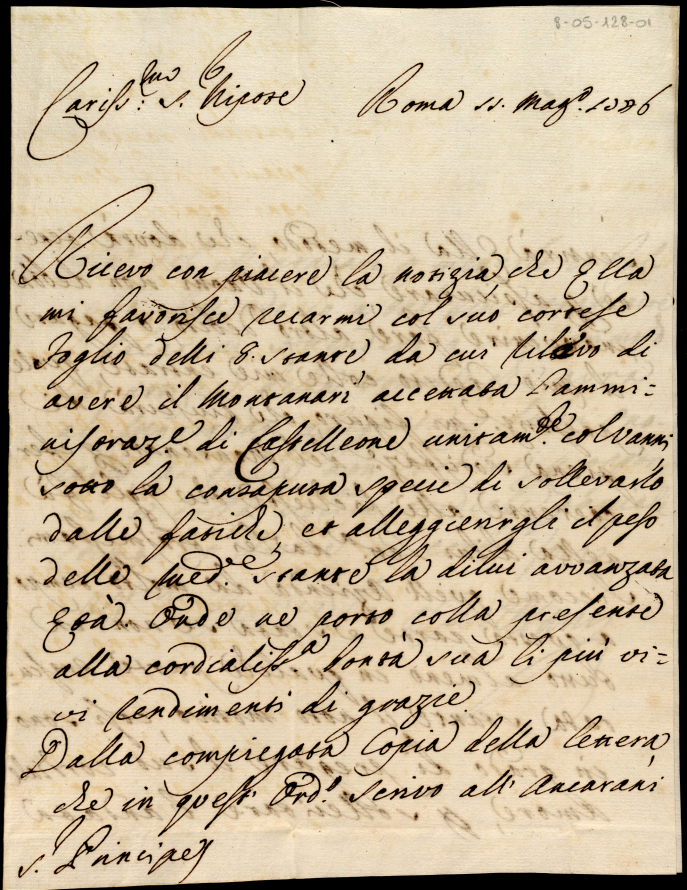 8-05-128-01
Cariss:mo S. Nipote Roma 11. Mag.o 1786
Ricevo con piacere la notizia, che Ella
mi favorisce recarmi col suo cortese
foglio delli 8. stante da cui rilevo di
avere il Montanari accettata l'ammi=
nistraz.e di Castelleone unitam.te col Vanni
sotto la consaputa specie di sollevarlo
dalle fatiche, et alleggierirgli il peso
delle med.e, stante la dilui avvanzata
Età. Onde ne porto colla presente
alla cordialiss.a bontà sua li più vi=
vi rendimenti di grazie.
Dalla compiegata Copia della lettera
che in quest' Ord.o scrivo all' Ancarani
S. Principe